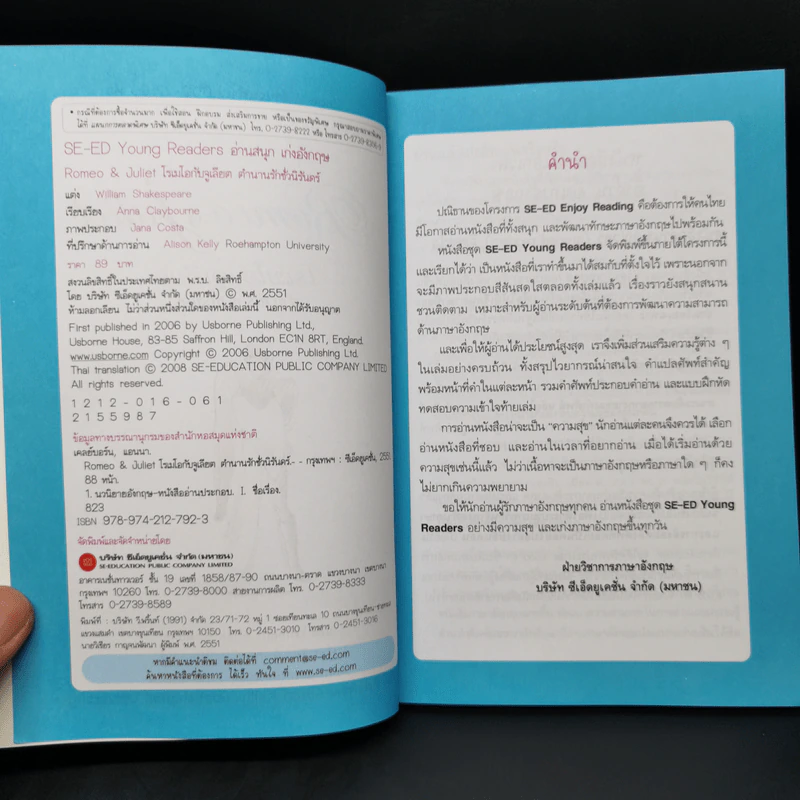 • กรณีที่ต้องการซื้อจำนวนมาก เพื่อใช้สอน ฝึกอบรม ส่งเสริมการขาย หรือเป็นของขวัญพิเศษ
ได้ที่ แผนกการตลาดพิเศษ บริษัท ซีเอ็ดยูเคชั่น จำกัด (มหาชน) โทร. 0-2739-8222 หรือ โทรสาร
SE-ED Young Readers อ่านสนุก เก่งอังกฤษ
Romeo & Juliet โรเมโอกับจูเลียต ตำนานรักชั่วนิรันดร์
แต่ง William Shakespeare
เรียบเรียง Anna Claybourne
ภาพประกอบ Jana Costa
ที่ปรึกษาด้านการอ่าน Alison Kelly Roehampton University
ราคา 89 บาท
สงวนลิขสิทธิ์ในประเทศไทยตาม พ.ร.บ. ลิขสิทธิ์
โดย บริษัท ซีเอ็ดยูเคชั่น จำกัด (มหาชน) © พ.ศ. 2551
ห้ามลอกเลียน ไม่ว่าส่วนหนึ่งส่วนใดของหนังสือเล่มนี้ นอกจากได้รับอนุญาต
First published in 2006 by Usborne Publishing Ltd.,
Usborne House, 83-85 Saffron Hill, London EC1N 8RT, England.
www.usborne.com Copyright © 2006 Usborne Publishing Ltd.
Thai translation © 2008 SE-EDUCATION PUBLIC COMPANY LIMITED
All rights reserved.
1 2 1 2 - 0 1 6 - 0 6 1
2 1 5 5 9 8 7
ข้อมูลทางบรรณานุกรมของสำนักหอสมุดแห่งชาติ
เคลย์บอร์น, แอนนา.
Romeo & Juliet โรเมโอกับจูเลียต ตำนานรักชั่วนิรันดร์.- - กรุงเทพฯ : ซีเอ็ดยูเคชั่น, 2551
88 หน้า.
1. นวนิยายอังกฤษ-หนังสืออ่านประกอบ. I. ชื่อเรื่อง.
823
ISBN 978-974-212-792-3
จัดพิมพ์และจัดจำหน่ายโดย
บริษัท ซีเอ็ดยูเคชั่น จำกัด (มหาชน)
SE-EDUCATION PUBLIC COMPANY LIMITED
อาคารเนชั่นทาวเวอร์ ชั้น 19 เลขที่ 1858/87-90 ถนนบางนา-ตราด แขวงบางนา เขตบางนา
กรุงเทพฯ 10260 โทร. 0-2739-8000 สายงานการผลิต โทร. 0-2739-8333
โทรสาร 0-2739-8589
พิมพ์ที่ : บริษัท วี.พริ้นท์ (1991) จำกัด 23/71-72 หมู่ 1 ซอยเทียนทะเล 10 ถนนบางขุนเทียน-ชายทะเล
แขวงแสมดำ เขตบางขุนเทียน กรุงเทพฯ 10150 โทร. 0-2451-3010 โทรสาร 0-2451-3016
นายวิเชียร กาญจนพัฒนา ผู้พิมพ์ พ.ศ. 2551
หากมีคำแนะนำติชม ติดต่อได้ที่ comment@se-ed.com
ค้นหาหนังสือที่ต้องการ ได้เร็ว ทันใจ ที่ www.se-ed.com
คำนำ
ปณิธานของโครงการ SE-ED Enjoy Reading คือต้องการให้คนไทย
มีโอกาสอ่านหนังสือที่ทั้งสนุก และพัฒนาทักษะภาษาอังกฤษไปพร้อมกัน
หนังสือชุด SE-ED Young Readers จัดพิมพ์ขึ้นภายใต้โครงการนี้
และเรียกได้ว่า เป็นหนังสือที่เราทำขึ้นมาได้สมกับที่ตั้งใจไว้ เพราะนอกจาก
จะมีภาพประกอบสีสันสดใสตลอดทั้งเล่มแล้ว เรื่องราวยังสนุกสนาน
ชวนติดตาม เหมาะสำหรับผู้อ่านระดับต้นที่ต้องการพัฒนาความสามารถ
ด้านภาษาอังกฤษ
และเพื่อให้ผู้อ่านได้ประโยชน์สูงสุด เราจึงเพิ่มส่วนเสริมความรู้ต่าง ๆ
ในเล่มอย่างครบถ้วน ทั้งสรุปไวยากรณ์น่าสนใจ คำแปลศัพท์สำคัญ
พร้อมหน้าที่คำในแต่ละหน้า รวมคำศัพท์ประกอบคำอ่าน และแบบฝึกหัด
ทดสอบความเข้าใจท้ายเล่ม
การอ่านหนังสือน่าจะเป็น “ความสุข” นักอ่านแต่ละคนจึงควรได้ เลือก
อ่านหนังสือที่ชอบ และอ่านในเวลาที่อยากอ่าน เมื่อได้เริ่มอ่านด้วย
ความสุขเช่นนี้แล้ว ไม่ว่าเนื้อหาจะเป็นภาษาอังกฤษหรือภาษาใด ๆ ก็คง
ไม่ยากเกินความพยายาม
ขอให้นักอ่านผู้รักภาษาอังกฤษทุกคน อ่านหนังสือชุด SE-ED Young
Readers อย่างมีความสุข และเก่งภาษาอังกฤษขึ้นทุกวัน
ฝ่ายวิชาการภาษาอังกฤษ
บริษัท ซีเอ็ดยูเคชั่น จำกัด (มหาชน)